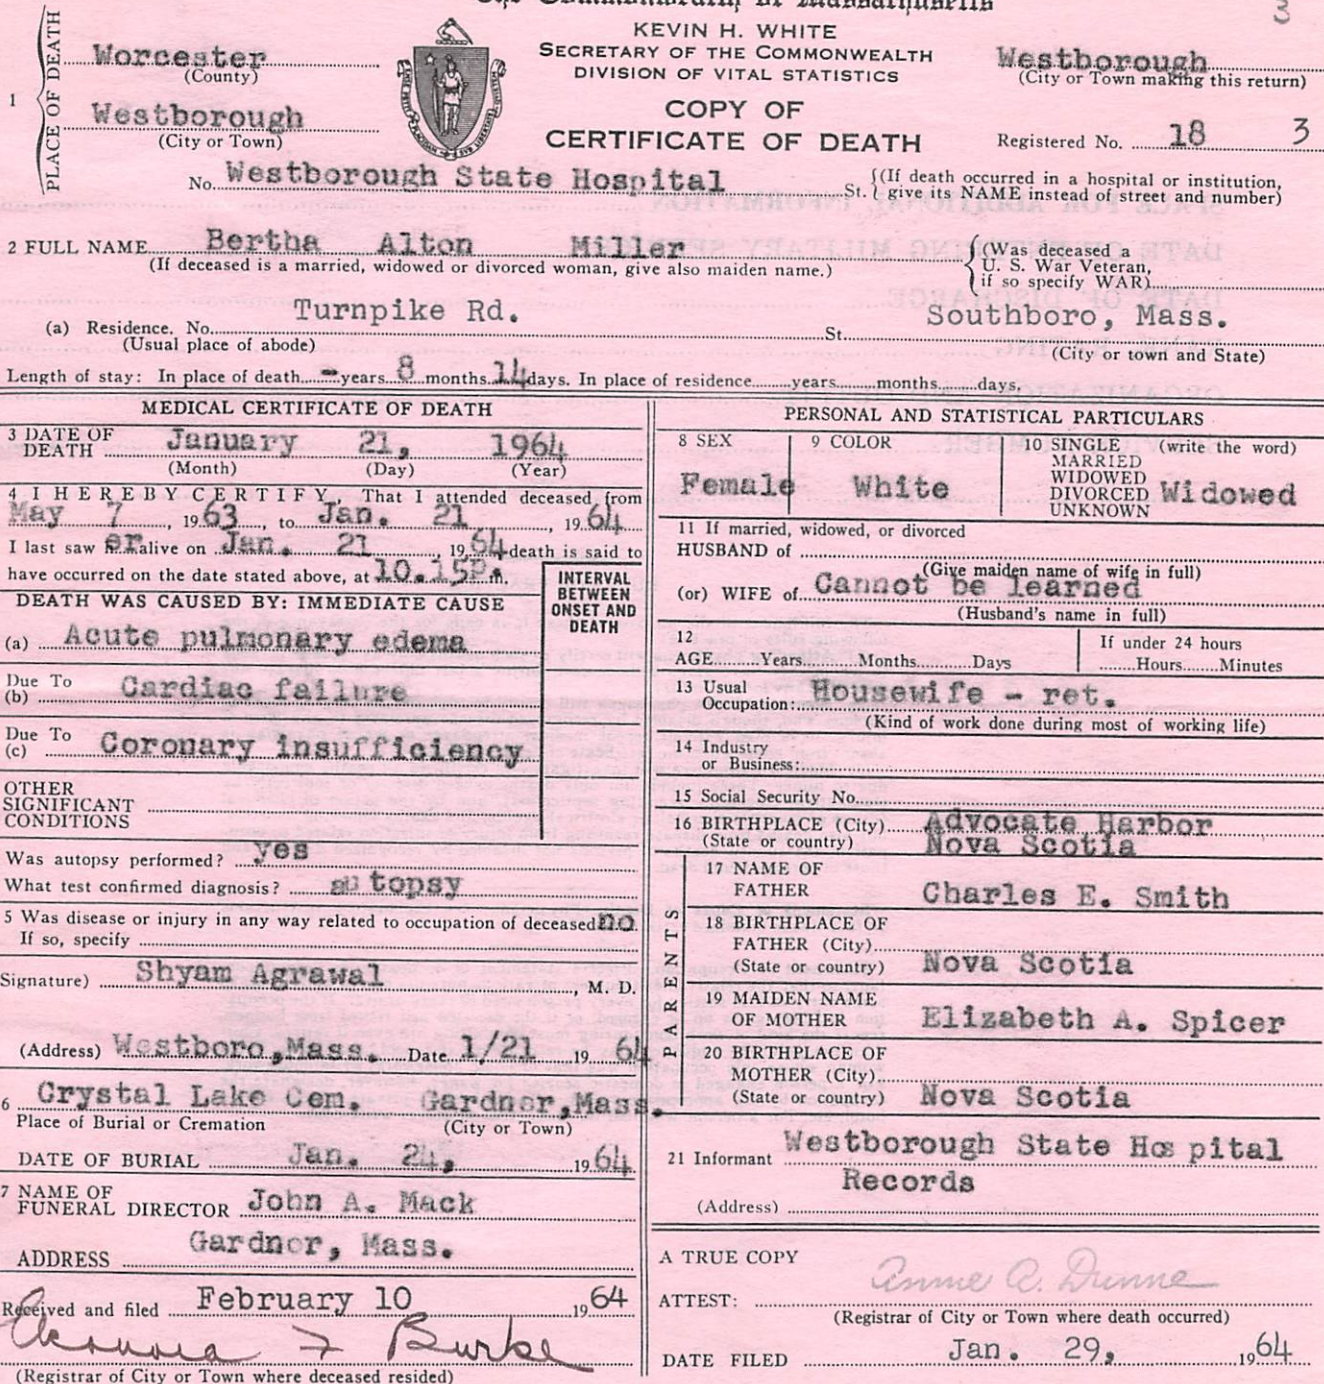 The Commonwealth of Massachusetts
3
KEVIN H. WHITE
SECRETARY OF THE COMMONWEALTH
DIVISION OF VITAL STATISTICS
COPY OF
CERTIFICATE OF DEATH
1 PLACE OF DEATH
Worcester
(County)
Westborough
(City or Town)
Westborough
(City or Town making this return)
Registered No. 18 3
No. Westborough State Hospital St. {(If death occurred in a hospital or institution, give its NAME instead of street and number)
2 FULL NAME Bertha Alton Miller
(If deceased is a married, widowed or divorced woman, give also maiden name.)
{(Was deceased a
U. S. War Veteran,
if so specify WAR)
(a) Residence. No. Turnpike Rd. St. Southboro, Mass.
(Usual place of abode) (City or town and State)
Length of stay: In place of death - years 8 months 14 days. In place of residence years months days.
MEDICAL CERTIFICATE OF DEATH
3 DATE OF DEATH January 21, 1964
(Month) (Day) (Year)
4 I HEREBY CERTIFY, That I attended deceased from
May 7, 1963, to Jan. 21, 1964
I last saw her alive on Jan. 21, 1964 death is said to
have occurred on the date stated above, at 10.15P.m.
DEATH WAS CAUSED BY: IMMEDIATE CAUSE
INTERVAL BETWEEN ONSET AND DEATH
(a) Acute pulmonary edema
Due To (b) Cardiac failure
Due To (c) Coronary insufficiency
OTHER SIGNIFICANT CONDITIONS
Was autopsy performed? yes
What test confirmed diagnosis? autopsy
5 Was disease or injury in any way related to occupation of deceased no.
If so, specify
Signature) Shyam Agrawal, M. D.
(Address) Westboro, Mass. Date 1/21 1964
6 Crystal Lake Cem. Gardner, Mass.
Place of Burial or Cremation (City or Town)
DATE OF BURIAL Jan. 24, 1964
7 NAME OF FUNERAL DIRECTOR John A. Mack
ADDRESS Gardner, Mass.
Received and filed February 10 1964
Eleanora F Burke
(Registrar of City or Town where deceased resided)
PERSONAL AND STATISTICAL PARTICULARS
8 SEX Female
9 COLOR White
10 SINGLE (write the word)
MARRIED
WIDOWED
DIVORCED Widowed
UNKNOWN
11 If married, widowed, or divorced
HUSBAND of
(Give maiden name of wife in full)
(or) WIFE of Cannot be learned
(Husband's name in full)
12 AGE Years Months Days
If under 24 hours
Hours Minutes
13 Usual Occupation: Housewife - ret.
(Kind of work done during most of working life)
14 Industry or Business:
15 Social Security No.
16 BIRTHPLACE (City) Advocate Harbor
(State or country) Nova Scotia
PARENTS
17 NAME OF FATHER Charles E. Smith
18 BIRTHPLACE OF FATHER (City)
(State or country) Nova Scotia
19 MAIDEN NAME OF MOTHER Elizabeth A. Spicer
20 BIRTHPLACE OF MOTHER (City)
(State or country) Nova Scotia
21 Informant Westborough State Hospital
Records
(Address)
A TRUE COPY
ATTEST: Annie A. Dunne
(Registrar of City or Town where death occurred)
DATE FILED Jan. 29, 1964